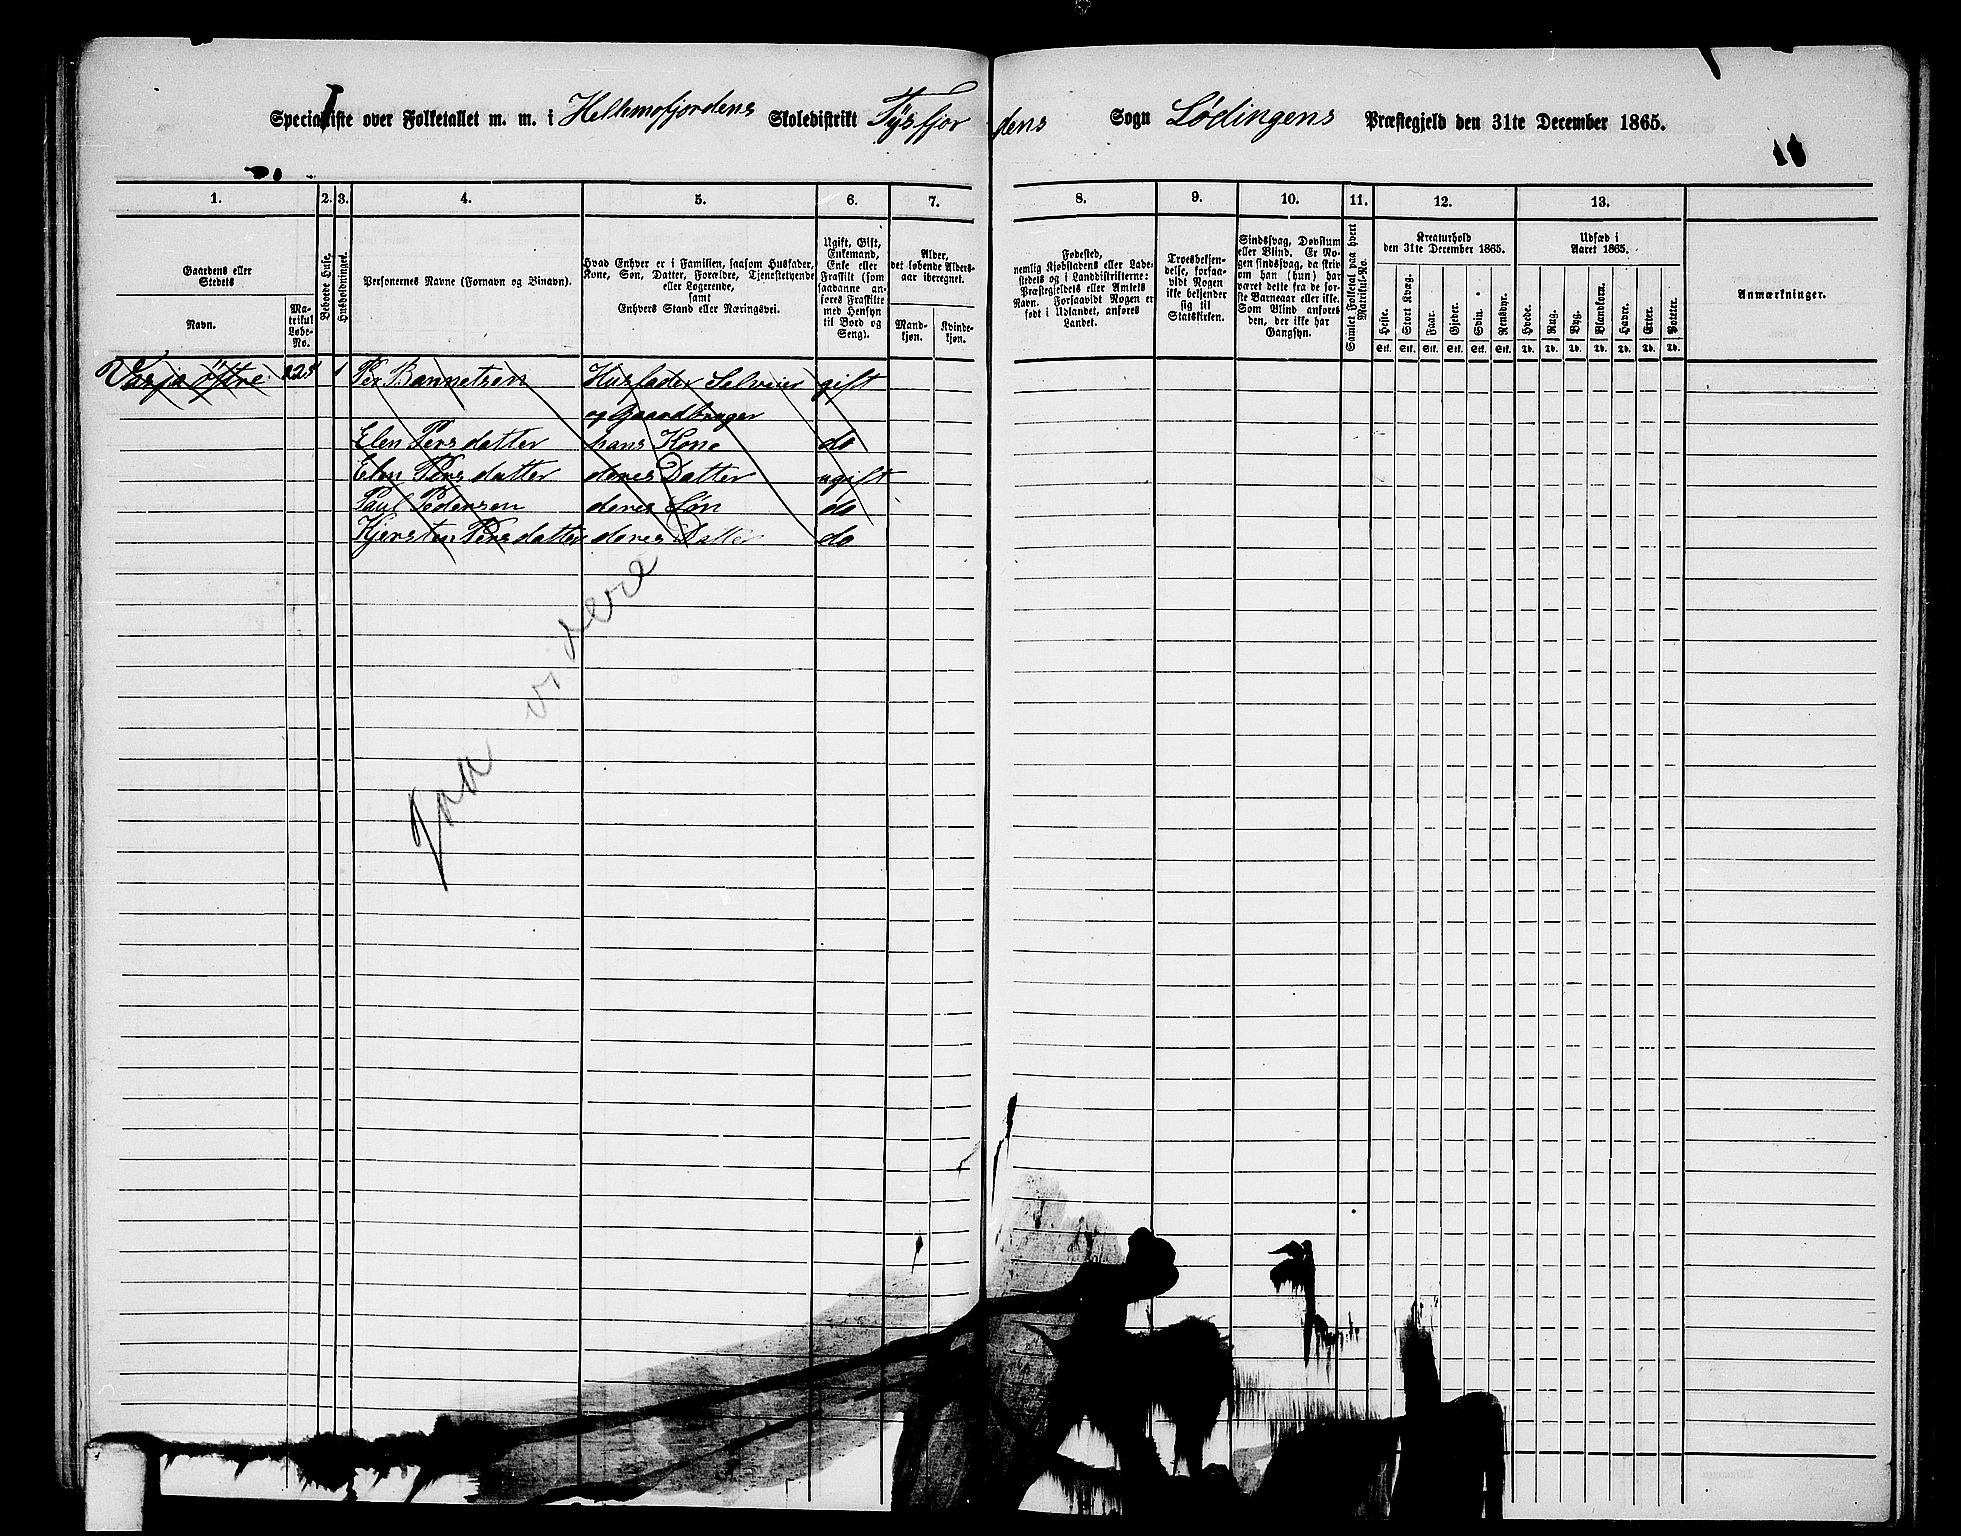 Specialliste over Folketallet m. m. i Hellemofjordens Skoledistrikt Tysfjordens Sogn Lødingens Præstegjeld den 31te December 1865.
1. 2. 3. 4. 5. 6. 7. 8. 9. 10. 11. 12. 13.
Gaardens eller Stedets
Navn.
Matrikul Løbe-No.
Beboede Huse.
Husholdninger.
Personernes Navne (Fornavn og Binavn).
Hvad Enhver er i Familien, saasom Husfader,
Kone, Søn, Datter, Forældre, Tjenestetyende
eller Logerende,
samt
Enhvers Stand eller Næringsvei.
Ugift, Gift,
Enkemand,
Enke eller
Fraskilt (som
saadanne an-
føres Fraskilte
med Hensyn
til Bord og
Seng).
Alder,
det løbende Alders-
aar iberegnet.
Mand-
kjøn.
Kvinde-
kjøn.
Fødested,
nemlig Kjøbstadens eller Lade-
stedets og i Landdistrikterne:
Præstegjeldets eller Amtets
Navn. Forsaavidt Nogen er
født i Udlandet, anføres
Landet.
Troesbekjen-
delse, forsaa-
vidt Nogen
ikke bekjender
sig til
Statskirken.
Sindssvag, Døvstum
eller Blind. Er No-
gen sindssvag, da skriv
om han (hun) har
været dette fra de før-
ste Barneaar eller ikke.
Som Blind anføres
den, der ikke har
Gangsyn.
Samlet Folketal paa hvert
Matrikul-No.
Kreaturhold
den 31te December 1865.
Heste. Stort Kvæg. Faar. Gjeder. Svin. Rensdyr.
Stk. Stk. Stk. Stk. Stk. Stk.
Udsæd i
Aaret 1865.
Hvede. Rug. Byg. Blandkorn. Havre. Erter. Poteter.
Td. Td. Td. Td. Td. Td. Td.
Anmærkninger.
1 Per Bannetsen Husfader Selveier gift
og Gaardbruger
Elen Persdatter hans Kone do
Elen Persdatter deres Datter ugift
Paul Pedersen deres Søn do
Kjersten Persdatter deres Datter do
videre